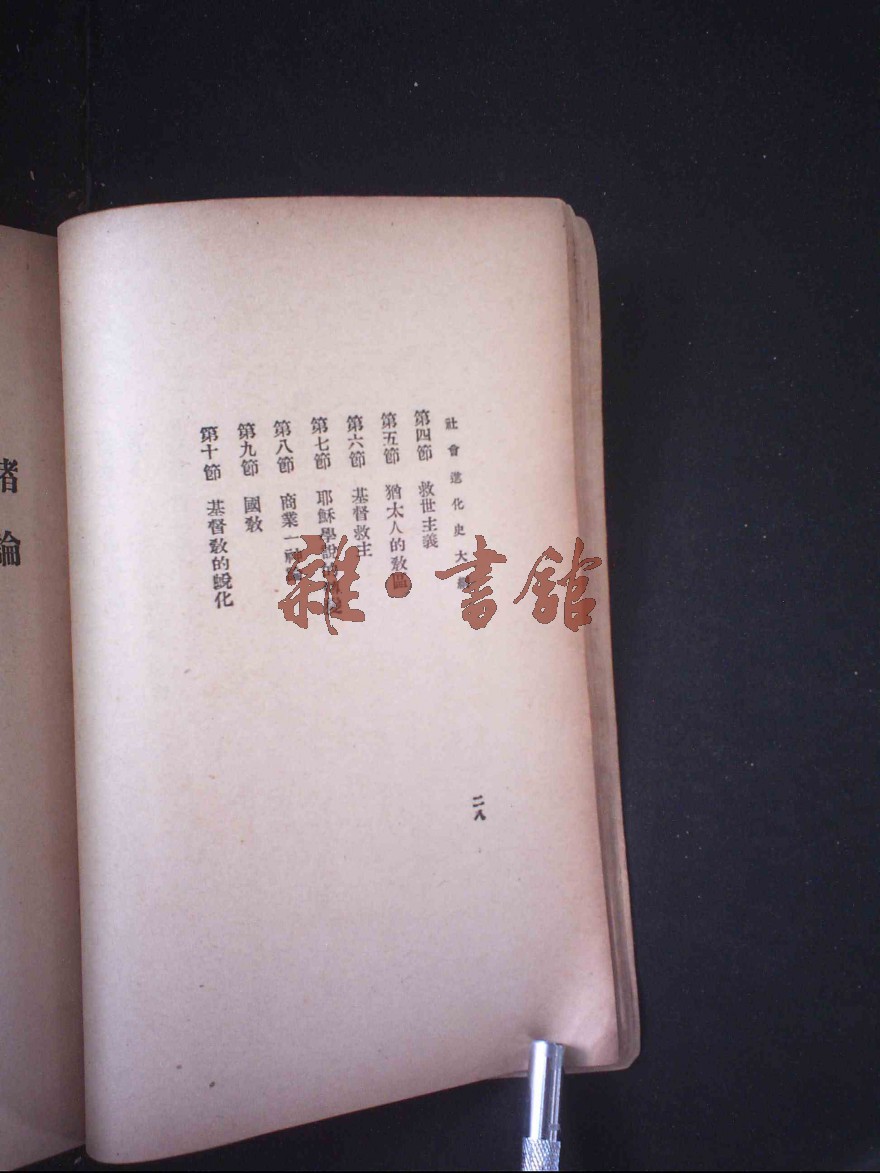 社會進化史大綱
第四節 救世主義
第五節 猶太人的教區
第六節 基督救主
第七節 耶穌學說的
第八節 商業一神論
第九節 國教
第十節 基督教的蛻化
二八
緒論
雜·書館